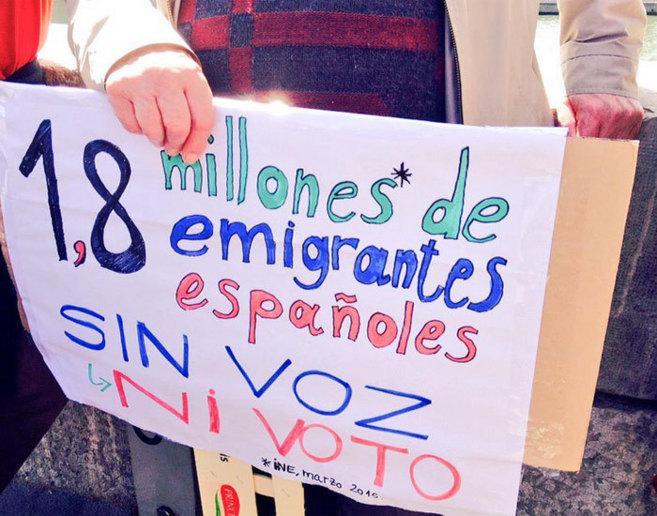 1,8 millones* de
emigrantes
españoles
SIN VOZ
NI VOTO
*INE, marzo 2016.
PRINC